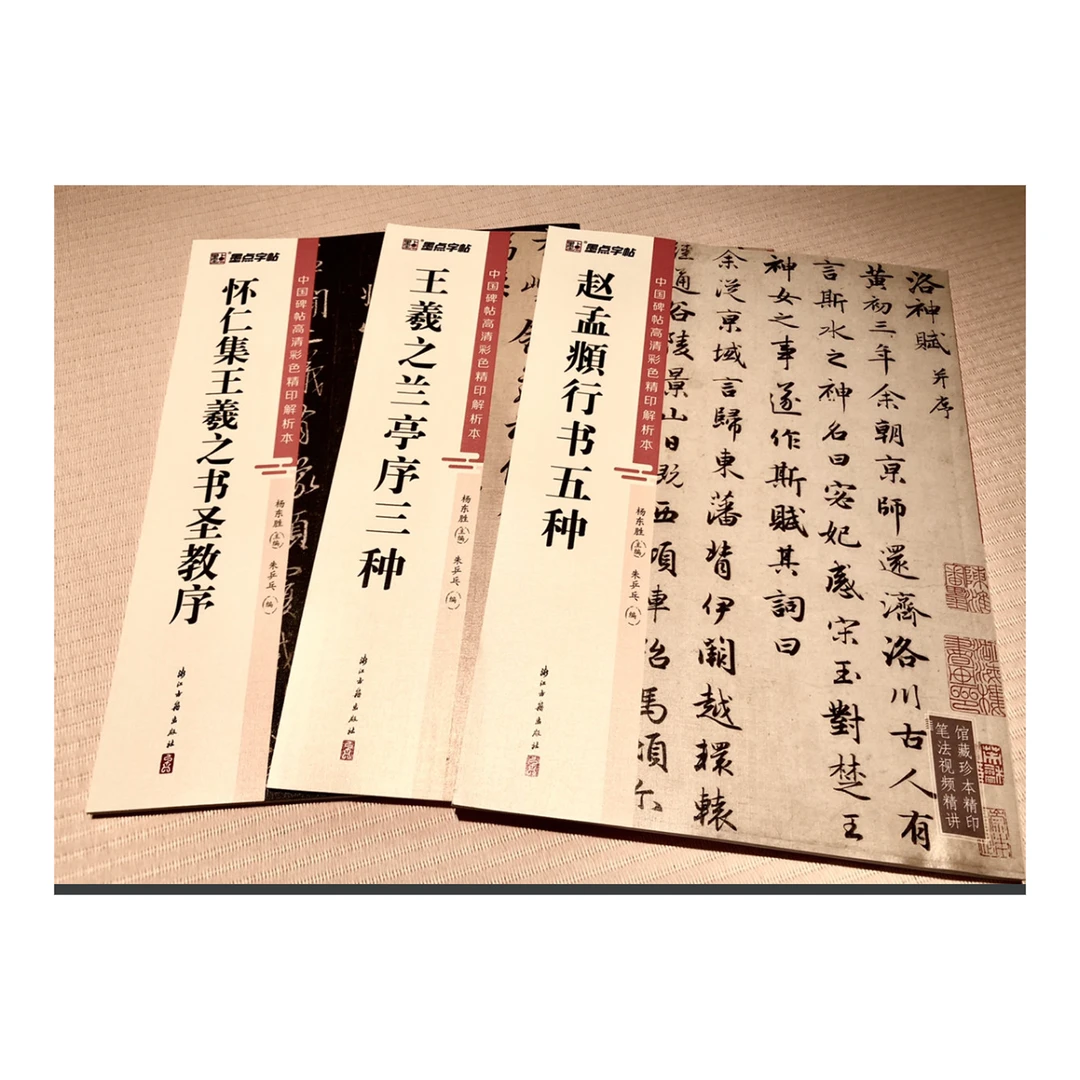 墨点字帖
中国碑帖高清彩色精印解析本
怀仁集王羲之书圣教序
杨东胜 主编 朱乒乓 编
浙江古籍出版社
墨点字帖
中国碑帖高清彩色精印解析本
王羲之兰亭序三种
杨东胜 主编 朱乒乓 编
浙江古籍出版社
墨点字帖
中国碑帖高清彩色精印解析本
赵孟頫行书五种
杨东胜 主编 朱乒乓 编
浙江古籍出版社
洛神賦 并序
黄初三年余朝京師還濟洛川古人有
言斯水之神名曰宓妃感宋玉對楚王
神女之事遂作斯賦其詞曰
余從京域言歸東藩背伊闕越轘轅
通谷陵景山日既西傾車殆馬煩尓
馆藏珍本精印
笔法视频精讲